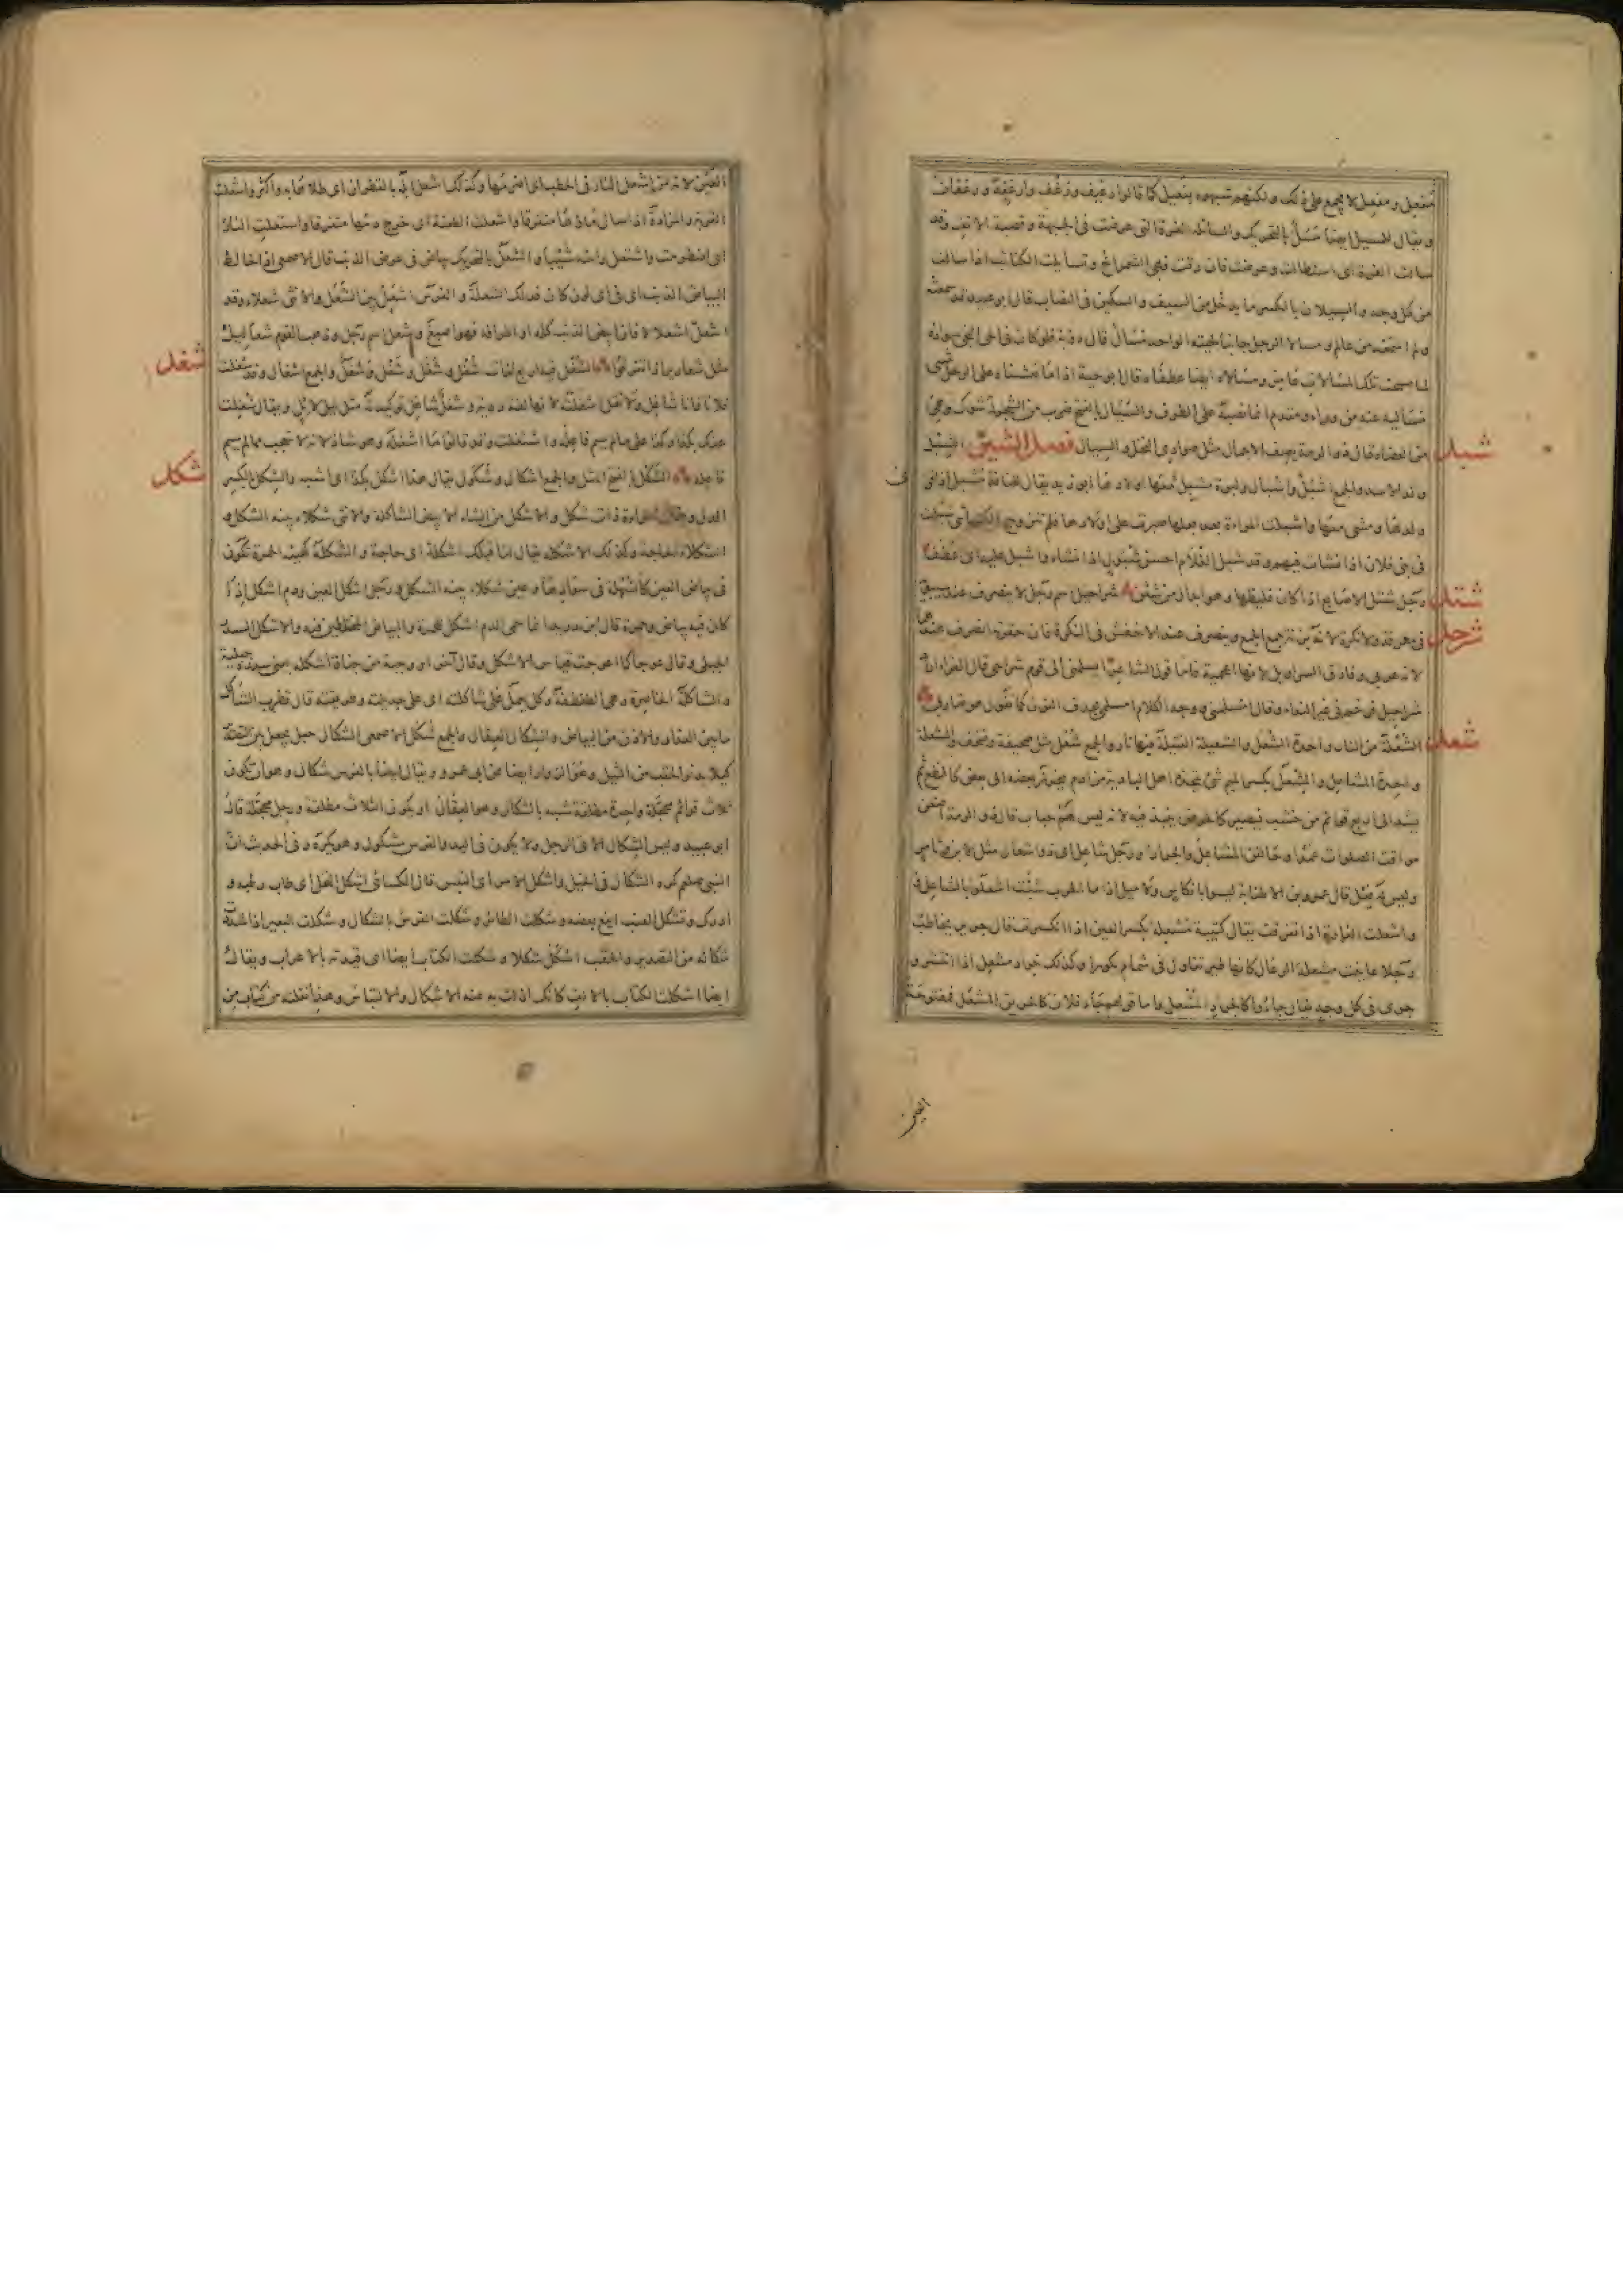 مَفعِل ومفعِل لا يجمع على ذلك ولكنهم شبهوه بفعيل كما قالوا رغيف ورغف وارغفة ورغفان
ويقال للمسيل ايضا مسل بالتحريك والسائلة الغرة التى عرضت فى الجبهة وقصبة الانف وقد
سالت الغرة اى استطالت وعرضت فان دقت فهى الشمراخ وتسايلت الكتائب اذا سالت
من كل وجه والسيلان بالكسر ما يدخل من السيف والسكين فى النصاب قال ابو عبيد قد سمعته
ولم اسمعه من عالم ومسالا الرجل جانبا لحيته الواحد مسال قال فلو كان فى الحى النجى سواده
لما مسحت تلك المسالات عامر ومسالاه ايضا عطفاه قال ابو حية اذا ما تغشاه على الرحل ينثنى
مساليه عنه من وراء ومقدم انما نصبه على الظرف والسيال بالفتح ضرب من الشجر له شوك وهى
من العضاه قال ذو الرمة يصف الاجمال مثل صوادى النخل والسيال فصل الشين الشبل
شبل
ولد الاسد والجمع اشبل واشبال ولبوة مشبل معها اولادها ابو زيد يقال للناقة مشبل اذا قوى
ولدها ومشى معها واشبلت المراة بعد بعلها صبرت على اولادها فلم تتزوج الكسائى شبلت
فى بنى فلان اذا نشات فيهم وقد شبل الغلام احسن شبول اذا نشاء واشبل عليه اى عطف
رجل شثل الاصابع اذا كان غليظها وهو ابدال من شثن شراحيل اسم رجل لا ينصرف عند سيبويه
شثل
فى معرفة ولا نكرة لانه بزنة جمع الجمع وينصرف عند الاخفش فى النكرة فان حقرته انصرف عندهما
شرحل
لانه عربى وفارق السراويل لانها اعجمية فاما قول الشاعر ايسلمنى الى قوم شراحى قال الفراء اراد
شراحيل فرخم فى غير النداء وقال امسلمنى ووجه الكلام امسلمى بحذف النون كما تقول هو ضاربى
الشعلة من النار واحدة الشعل والشعيلة الفتيلة فيها نار والجمع شعل مثل صحيفة وصحف والمشعلة
شعل
واحدة المشاعل والمشعل بكسر الميم شئ يتخذه اهل البادية من ادم يخرز بعضه الى بعض كالنطع ثم
يشد الى اربع قوائم من خشب فيصير كالحوض ينبذ فيه لانه ليس لهم حباب قال ذو الرمة اضعن
مواقت الصلوات عمدا وحالفن المشاعل والجرارا ورجل شاعل اى ذو اشعال مثل لابن وتامر
وليس له فعل قال عمرو بن الاطنابة ليسوا بانكاس ولا ميل اذا ما الحرب شبت اشعلوا بالشاعل
واشعلت الغارة اذا تفرقت يقال كتيبة مشعلة بكسر العين اذا انتشرت قال جرير يخاطب
رجلا عاينت مشعلة الرعال كانها طير تغاول فى شمام وكورا وكذلك جراد مشعل اذا انتشر و
جرى فى كل وجه يقال جاءوا كالجراد المشعل واما قولهم جاء فلان كالحريق المشعل فمفتوحة
العين
العين لانه من اشعل النار فى الحطب اى اضرمها وكذلك اشعل ابله بالقطران اى طلاها به واكثر واشعلت
القربة والمزادة اذا سال ماؤها متفرقا واشعلت الطعنة اى خرج دمها متفرقا واشتعلت النار
اى اضطرمت واشتعل راسه شيبا والشعل بالتحريك بياض فى عرض الذنب قال الاصمعى اذا خالط
البياض الذنب اى فى اى لون كان فذلك الشعلة والفرس اشعل بين الشعل والانثى شعلاء وقد
اشعل اشعلالا فاذا ابيض الذنب كله او اطرافه فهو اصبغ وشعل اسم رجل وذهب القوم شعاليل
مثل شعارير اذا تفرقوا الشغل فيه اربع لغات شغل وشغل وشغل وشغل والجمع اشغال وقد شغلت
شغل
فلانا فانا شاغل ولا تقل اشغلته لانها لغة ردية وشغل شاغل توكيد له مثل ليل لائل ويقال شغلت
عنك بكذا وكذا على ما لم يسم فاعله واشتغلت وقد قالوا ما اشغله وهو شاذ لانه لا تعجب مما لم يسم
فاعله الشكل بالفتح المثل والجمع اشكال وشكول يقال هذا اشكل بكذا اى اشبه والشكل بالكسر
شكل
الدل امراة ذات شكل والاشكل من الشاء الابيض الشاكلة والانثى شكلاء بينة الشكل و
الشكلاء الحاجة وكذلك الاشكلة يقال لنا قبلك اشكلة اى حاجة والشكلة كهيئة الحمرة تكون
فى بياض العين كالشهلة فى سوادها وعين شكلاء بينة الشكل ورجل اشكل العين ودم اشكل اذا
كان فيه بياض وحمرة قال ابن دريد انما سمى الدم اشكل للحمرة والبياض المختلطين فيه والاشكل السدر
الجبلى وقال عوجا كما اعوجت قياس الاشكل وقال آخر او وجبة من جناة اشكلة يعنى سدرة جبلية
والشاكلة الخاصرة وهى الطفطفة وكل يعمل على شاكلته اى على جديلته وطريقته قال قطرب الشاكل
ما بين العذار والاذن من البياض والشكال العقال والجمع شكل الاصمعى الشكال حبل يجعل بين التصدير
كيلا يدنو الحقب من الثيل وهو الزوار ايضا عن ابى عمرو ويقال ايضا بالفرس شكال وهو ان تكون
ثلاث قوائم محجلة وواحدة مطلقة شبه بالشكال وهو العقال او يكون الثلاث مطلقة ورجل محجلة قال
ابو عبيد وليس الشكال الا فى الرجل ولا يكون فى اليد والفرس مشكول وهو يكره وفى الحديث ان
النبى صلعم كره الشكال فى الخيل واشكل الامر اى التبس قال الكسائى اشكل النخل اى طاب رطبه و
ادرك وتشكل العنب اينع بعضه وشكلت الطائر وشكلت الفرس بالشكال وشكلت البعير اذا شددت
شكاله من التصدير والحقب اشكل شكلا وشكلت الكتاب ايضا اى قيدته بالاعراب ويقال
ايضا اشكلت الكتاب بالالف كانك ازلت به عنه الاشكال والالتباس وهذا نقلته من كتاب من